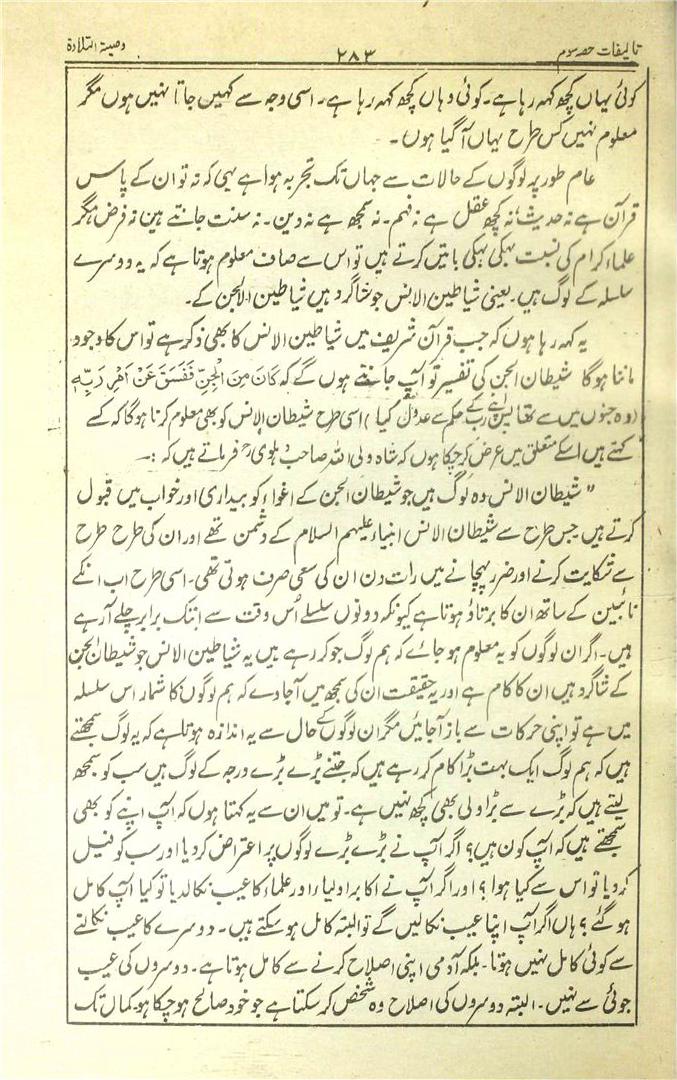 تالیفات حصہ سوم ۲۸۳ وصیۃ التلاوۃ
کوئی یہاں کچھ کہہ رہا ہے۔ کوئی وہاں کچھ کہہ رہا ہے۔ اسی وجہ سے کہیں جاتا نہیں ہوں مگر
معلوم نہیں کس طرح یہاں آگیا ہوں۔
عام طور پر لوگوں کے حالات سے جہاں تک تجربہ ہوا ہے یہی کہ نہ تو ان کے پاس
قرآن ہے نہ حدیث، نہ کچھ عقل ہے نہ فہم۔ نہ سمجھ ہے نہ دین۔ نہ سنت جانتے ہیں نہ فرض مگر
علماء کرام کی نسبت بہکی بہکی باتیں کرتے ہیں تو اس سے صاف معلوم ہوتا ہے کہ یہ دوسرے
سلسلہ کے لوگ ہیں۔ یعنی شیاطین الانس جو شاگرد ہیں شیاطین الجن کے۔
یہ کہہ رہا ہوں کہ جب قرآن شریف میں شیاطین الانس کا بھی ذکر ہے تو اس کا وجود
ماننا ہوگا شیطان الجن کی تفسیر تو آپ جانتے ہوں گے کہ كَانَ مِنَ الْجِنِّ فَفَسَقَ عَنْ اَمْرِ رَبِّهٖ
(وہ جنوں میں سے تھا پس اپنے رب کے حکم سے عدول کیا) اسی طرح شیطان الانس کو بھی معلوم کرنا ہوگا کہ کسے
کہتے ہیں اسکے متعلق میں عرض کرچکا ہوں کہ شاہ ولی اللہ صاحب دہلویؒ فرماتے ہیں کہ :۔
"شیطان الانس وہ لوگ ہیں جو شیطان الجن کے اغواء کو بیداری اور خواب میں قبول
کرتے ہیں جس طرح سے شیطان الانس انبیاء علیہم السلام کے دشمن تھے اور ان کی طرح طرح
سے شکایت کرنے اور ضرر پہچانے میں رات دن ان کی سعی صرف ہوتی تھی۔ اسی طرح اب انکے
نائبین کے ساتھ ان کا برتاؤ ہوتا ہے کیونکہ دونوں سلسلے اُس وقت سے ابتک برابر چلے آرہے
ہیں۔ اگر ان لوگوں کو یہ معلوم ہو جائے کہ ہم لوگ جو کر رہے ہیں یہ شیاطین الانس جو شیطان الجن
کے شاگرد ہیں ان کا کام ہے اور یہ حقیقت ان کی سمجھ میں آجاوے کہ ہم لوگوں کا شمار اس سلسلہ
میں ہے تو اپنی حرکات سے باز آجائیں مگر ان لوگوں کے حال سے یہ اندازہ ہوتا ہے کہ یہ لوگ سمجھتے
ہیں کہ ہم لوگ ایک بہت بڑا کام کر رہے ہیں کہ جتنے بڑے بڑے درجہ کے لوگ ہیں سب کو سمجھ
لیتے ہیں کہ بڑے سے بڑا ولی بھی کچھ نہیں ہے۔ تو میں ان سے یہ کہتا ہوں کہ آپ اپنے کو بھی
سمجھتے ہیں کہ آپ کون ہیں؟ اگر آپ نے بڑے بڑے لوگوں پر اعتراض کر دیا اور سب کو فیل
کر دیا تو اس سے کیا ہوا؟ اور اگر آپ نے اکابر اولیاء اور علماء کا عیب نکالدیا تو کیا آپ کامل
ہو گئے؟ ہاں اگر آپ اپنا عیب نکالیں گے تو البتہ کامل ہو سکتے ہیں۔ دوسرے کا عیب نکالنے
سے کوئی کامل نہیں ہوتا۔ بلکہ آدمی اپنی اصلاح کرنے سے کامل ہوتا ہے۔ دوسروں کی عیب
جوئی سے نہیں۔ البتہ دوسروں کی اصلاح وہ شخص کرسکتا ہے جو خود صالح ہوچکا ہو۔ کہاں تک